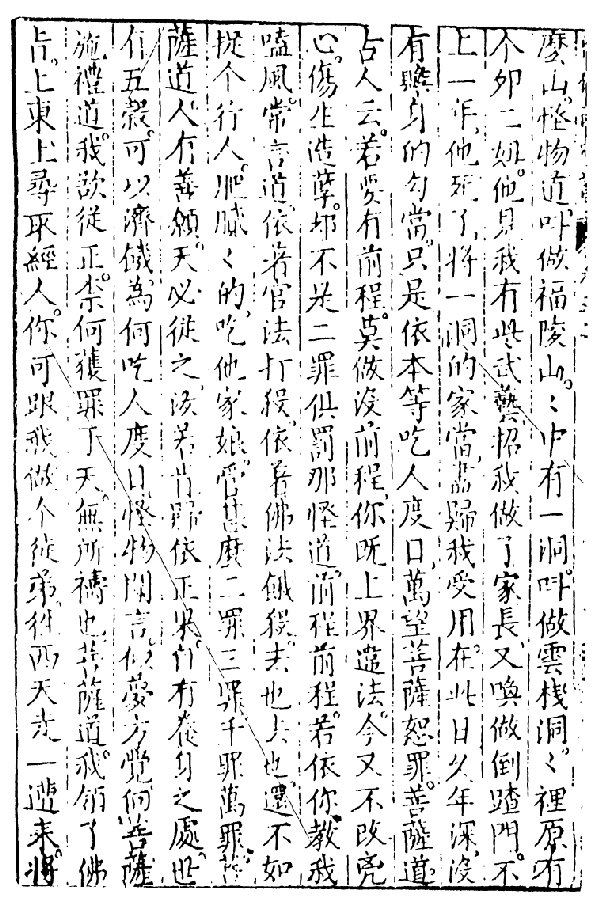 麼山怪物道叫做福陵山〻中有一洞叫做雲棧洞〻裡原有
个卯二姐他見我有些武藝招我做了家長又喚做倒蹅門不
上一年他死了將一洞的家當盡歸我受用在此日久年深沒
有贍身的勾當只是依本等吃人度日萬望菩薩恕罪菩薩道
古人云若要有前程莫做沒前程你既上界違法今又不改兇
心傷生造孽却不是二罪俱罰那怪道前程前程若依你教我
嗑風常言道依著官法打殺依著佛法餓殺去也去也還不如
捉个行人肥膩〻的吃他家娘管甚麼二罪三罪千罪萬罪菩
薩道人有善願天必從之汝若肯歸依正果自有養身之處世
有五穀可以濟饑為何吃人度日怪物聞言似夢方覺向菩薩
施禮道我欲從正奈何獲罪于天無所禱也菩薩道我領了佛
旨上東土尋取經人你可跟我做个徒弟往西天走一遭來將